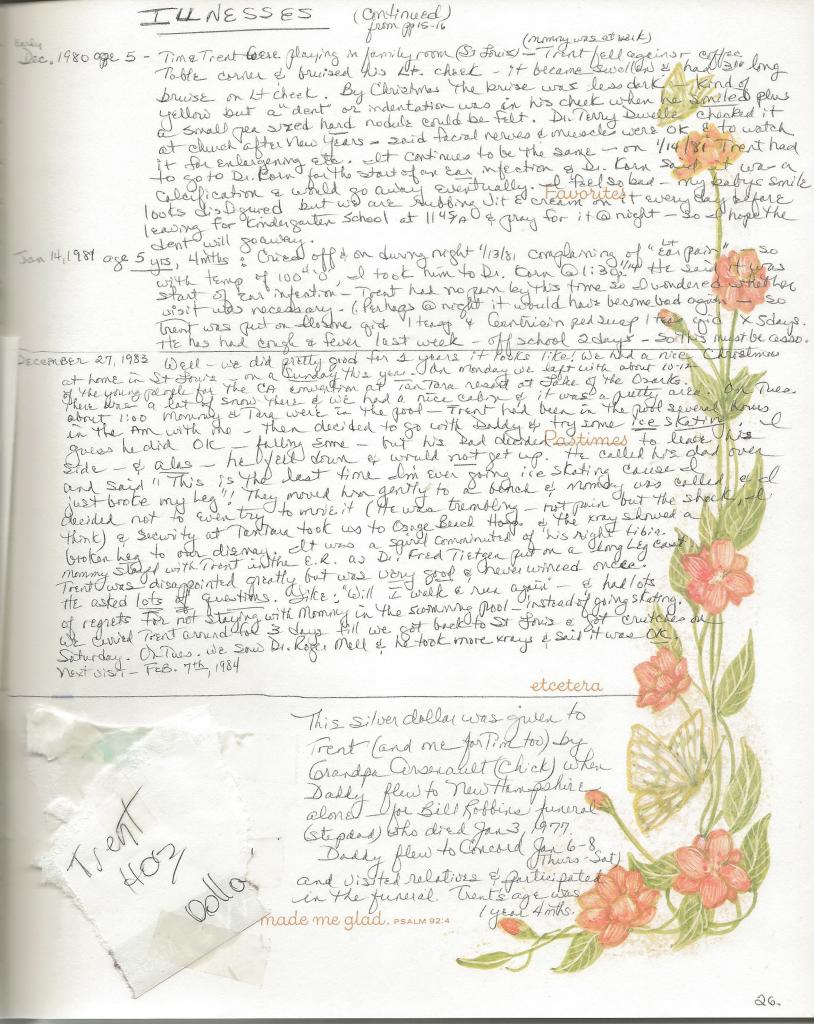 ILLNESSES (Continued)
from pp 15-16
(mommy was at work)
Early
Dec. 1980 age 5 - Tim & Trent were playing in family room (St Louis) - Trent fell against coffee
Table corner & bruised his Lt. cheek - it became swollen & had long
bruise on Lt cheek. By Christmas the bruise was less dark - kind of
yellow but a "dent or indentation was in his cheek when he smiled plus
a small pea sized hard nodule could be felt. Dr. Terry Dwelle checked it
at church after New Years - said facial nerves & muscle were OK & to watch
it for enlargening etc. It continues to be the same - on 1/14/81 Trent had
to go to Dr. Korn for the start of an ear infection & Dr. Korn said it was a
calcification & would go away eventually. I feel so bad - my babys smile
Favorites
looks disfigured but we are rubbing Vit E cream on it every day before
leaving for Kindergarten School at 1145A & pray for it @ night - so I hope the
dent will go away.
Jan 14, 1981 age 5 yrs, 4mths: Cried off & on during night 1/13/81 complaining of "Lt ear pain" - so
with temp of 100°, I took him to Dr. Korn @ 1:30p 1/14 He said it was
start of ear infection - Trent had no pain by this time so I wondered whether
visit was necessary. (Perhaps @ night it would have become bad again - so
Trent was put on qid 1 teasp & ped susp 1 teas qid x 5 days.
He has had cough & fever last week - off school 2 days - so this must be assoc.
DECEMBER 27, 1983 Well - we did pretty good for 2 years it looks like! We had a nice Christmas
at home in St Louis - on a Sunday this year. On Monday we left with about 10-12
of the young people for the CA convention at TanTara resort at Lake of the Ozarks.
There was a lot of snow there & we had a nice cabin & it was a pretty area. On Tues
about 1:00 Mommy & Tara were in the pool - Trent had been in the pool several hours
in the AM with me - then decided to go with Daddy & try some ice skating. I
guess he did OK - falling some - but his Dad decided to leave his
Pastimes
side - & alas - he fell down & would not get up. He called his dad over
and said "This is the last time I'm ever going ice skating cause I
just broke my leg"! They moved him gently to a bench & mommy was called & I
decided not to even try to move it (He was trembling - not pain but the shock, I
think) & security at TanTara took us to Osage Beach Hosp & the xray showed a
broken leg to our dismay. It was a spiral comminuted of his right tibia.
Mommy stayed with Trent in the E.R. as Dr. Fred Tietgen put on a long leg cast
Trent was disappointed greatly but was very good & never winced once.
He asked lots of questions. Like: "Will I walk & run again" - & had lots
of regrets for not staying with Mommy in the swimming pool - instead of going skating.
We carried Trent around for 3 days till we got back to St Louis & got crutches on
Saturday. On Tues. we saw Dr. Roger Mell & he took more xrays & said it was OK.
Next visit - FEB. 7th, 1984
etcetera
This silver dollar was given to
Trent (and one for Tim too) by
Grandpa Arsenault (Chick) when
Daddy flew to New Hampshire
alone - for Bill Robbins funeral
(stepdad) who died Jan 3, 1977.
Daddy flew to Concord Jan 6-8
(Thurs-Sat)
and visited relatives & participated
in the funeral. Trent's age was
1 year 4 mths.
Trent
Dolla
made me glad. PSALM 92:4
26.